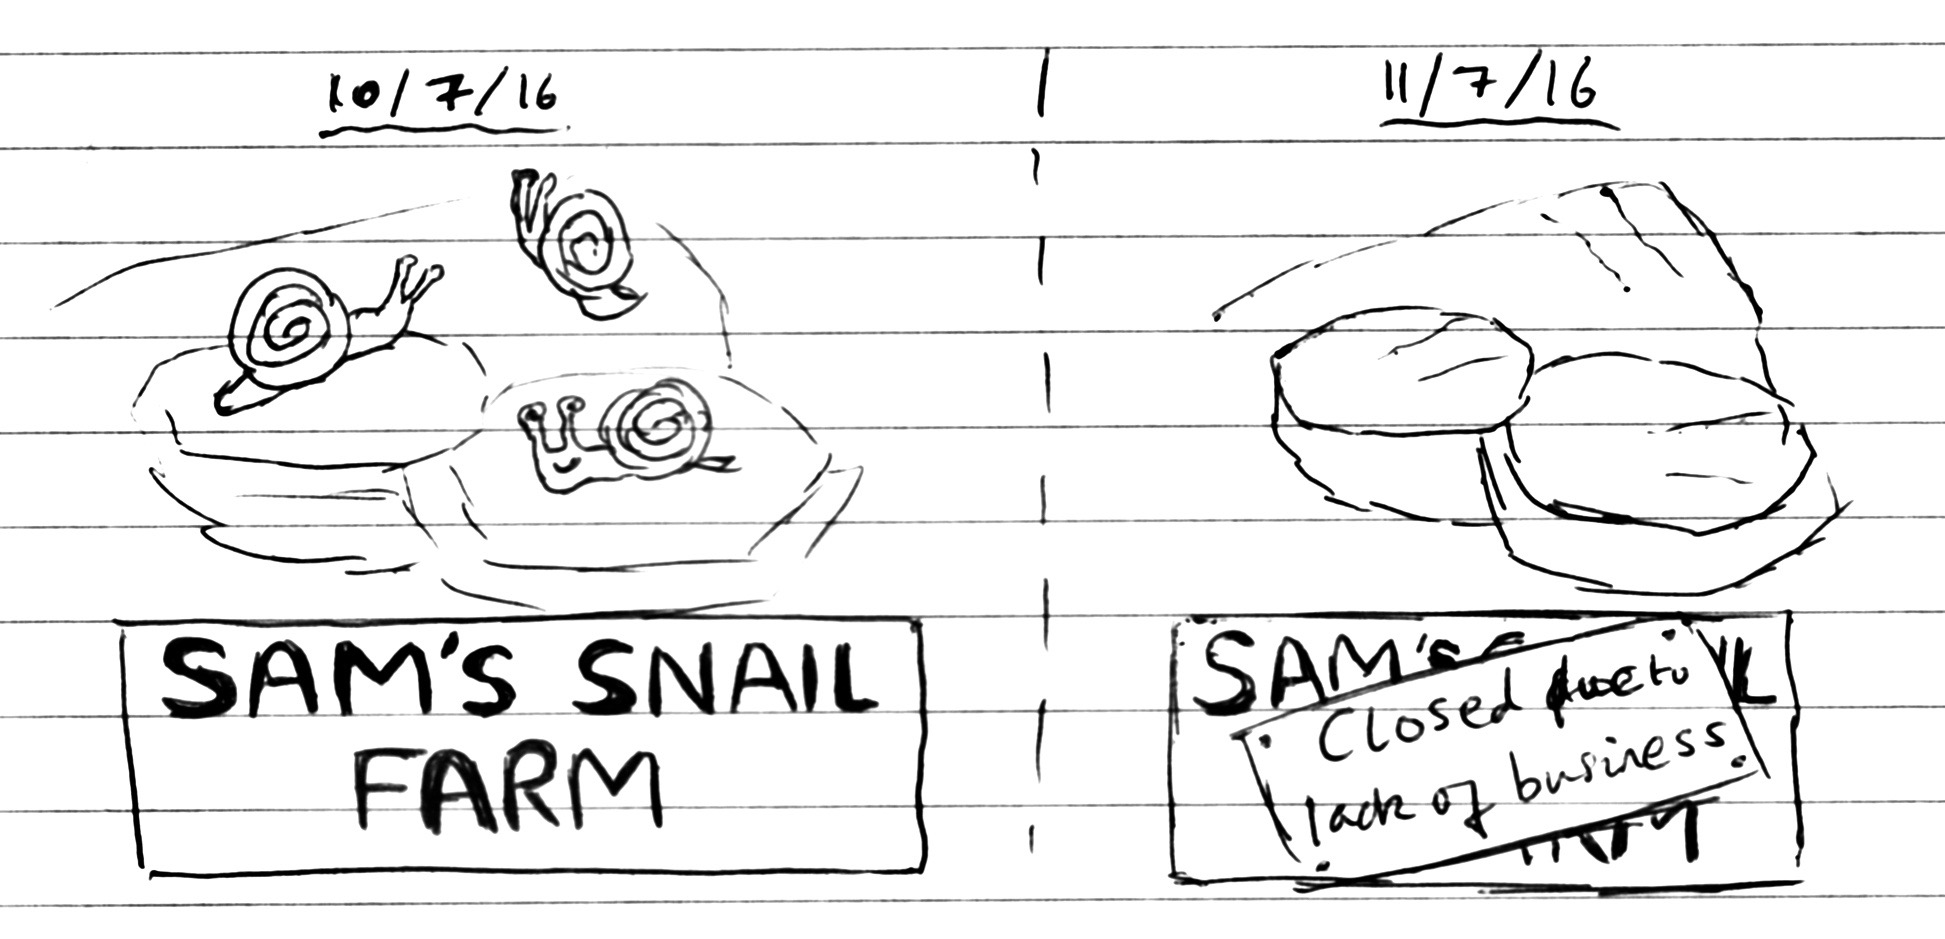 10/7/16
SAM'S SNAIL
FARM
11/7/16
SAM'S
Closed due to
lack of business